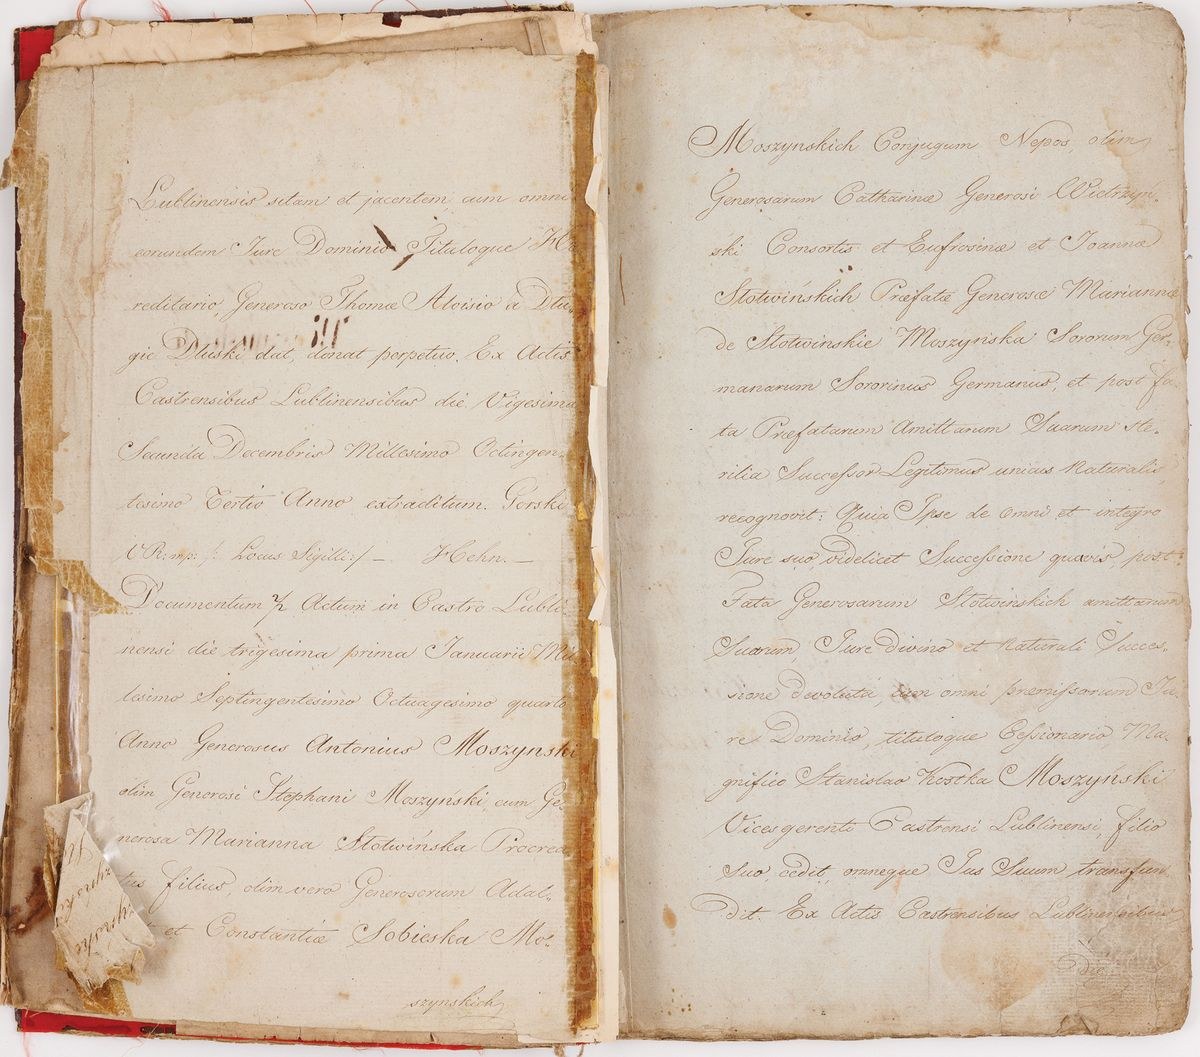 Lublinensis sitam et jacentem cum omni
eorundem Jure Dominio Tituloque Hæ
reditario, Generoso Thomæ Aloisio a Dłu,
gie Dłuski dat, donat perpetuo. Ex Actis
Castrensibus Lublinensibus die Vigesima
Secunda Decembris Millesimo Octingen,
tesimo Tertio Anno extraditum. Górski
VR: mp: /: Locus Sigilli :/ — Hehn. —
Documentum 2/2 Actum in Castro Lubli
nensi die trigesima prima Januarii Mil
lesimo Septingentesimo Octuagesimo quarto
Anno Generosus Antonius Moszynski
olim Generosi Stephani Moszyński, cum Ge,
nerosa Marianna Słotwińska Procrea
tus filius, olim vero Generosorum Adal,
et Constantiæ Sobieska Mo,
szynskich
Moszynskich Conjugum Nepos, olim
Generosarum Catharinæ Generosi Wietrzyń,
ski Consortis et Eufrosinæ et Joannæ
Słotwińskich Præfatæ Generosæ Mariannæ
de Słotwinskie Moszyńska Sororum Ger,
manarum Sororinus Germanus, et post fa
ta Præfatarum Amittarum Suarum ste,
rilia Successor Legitimus unicus Naturalis
recognovit: Quia Ipse de omni et integro
Jure suo videlicet Successione quavis, post
Fata Generosarum Słotwinskich amittarum
Suarum, Jure Divino et Naturali Succes,
sione devoluta, cum omni premissorum Ju,
re Dominio, tituloque Cessionario, Ma,
gnifico Stanislao Kostka Moszyński
Vicesgerenti Castrensi Lublinensi, filio
suo, cedit, omneque Jus Suum transfun
dit. Ex Actis Castrensibus Lublinensibus
die